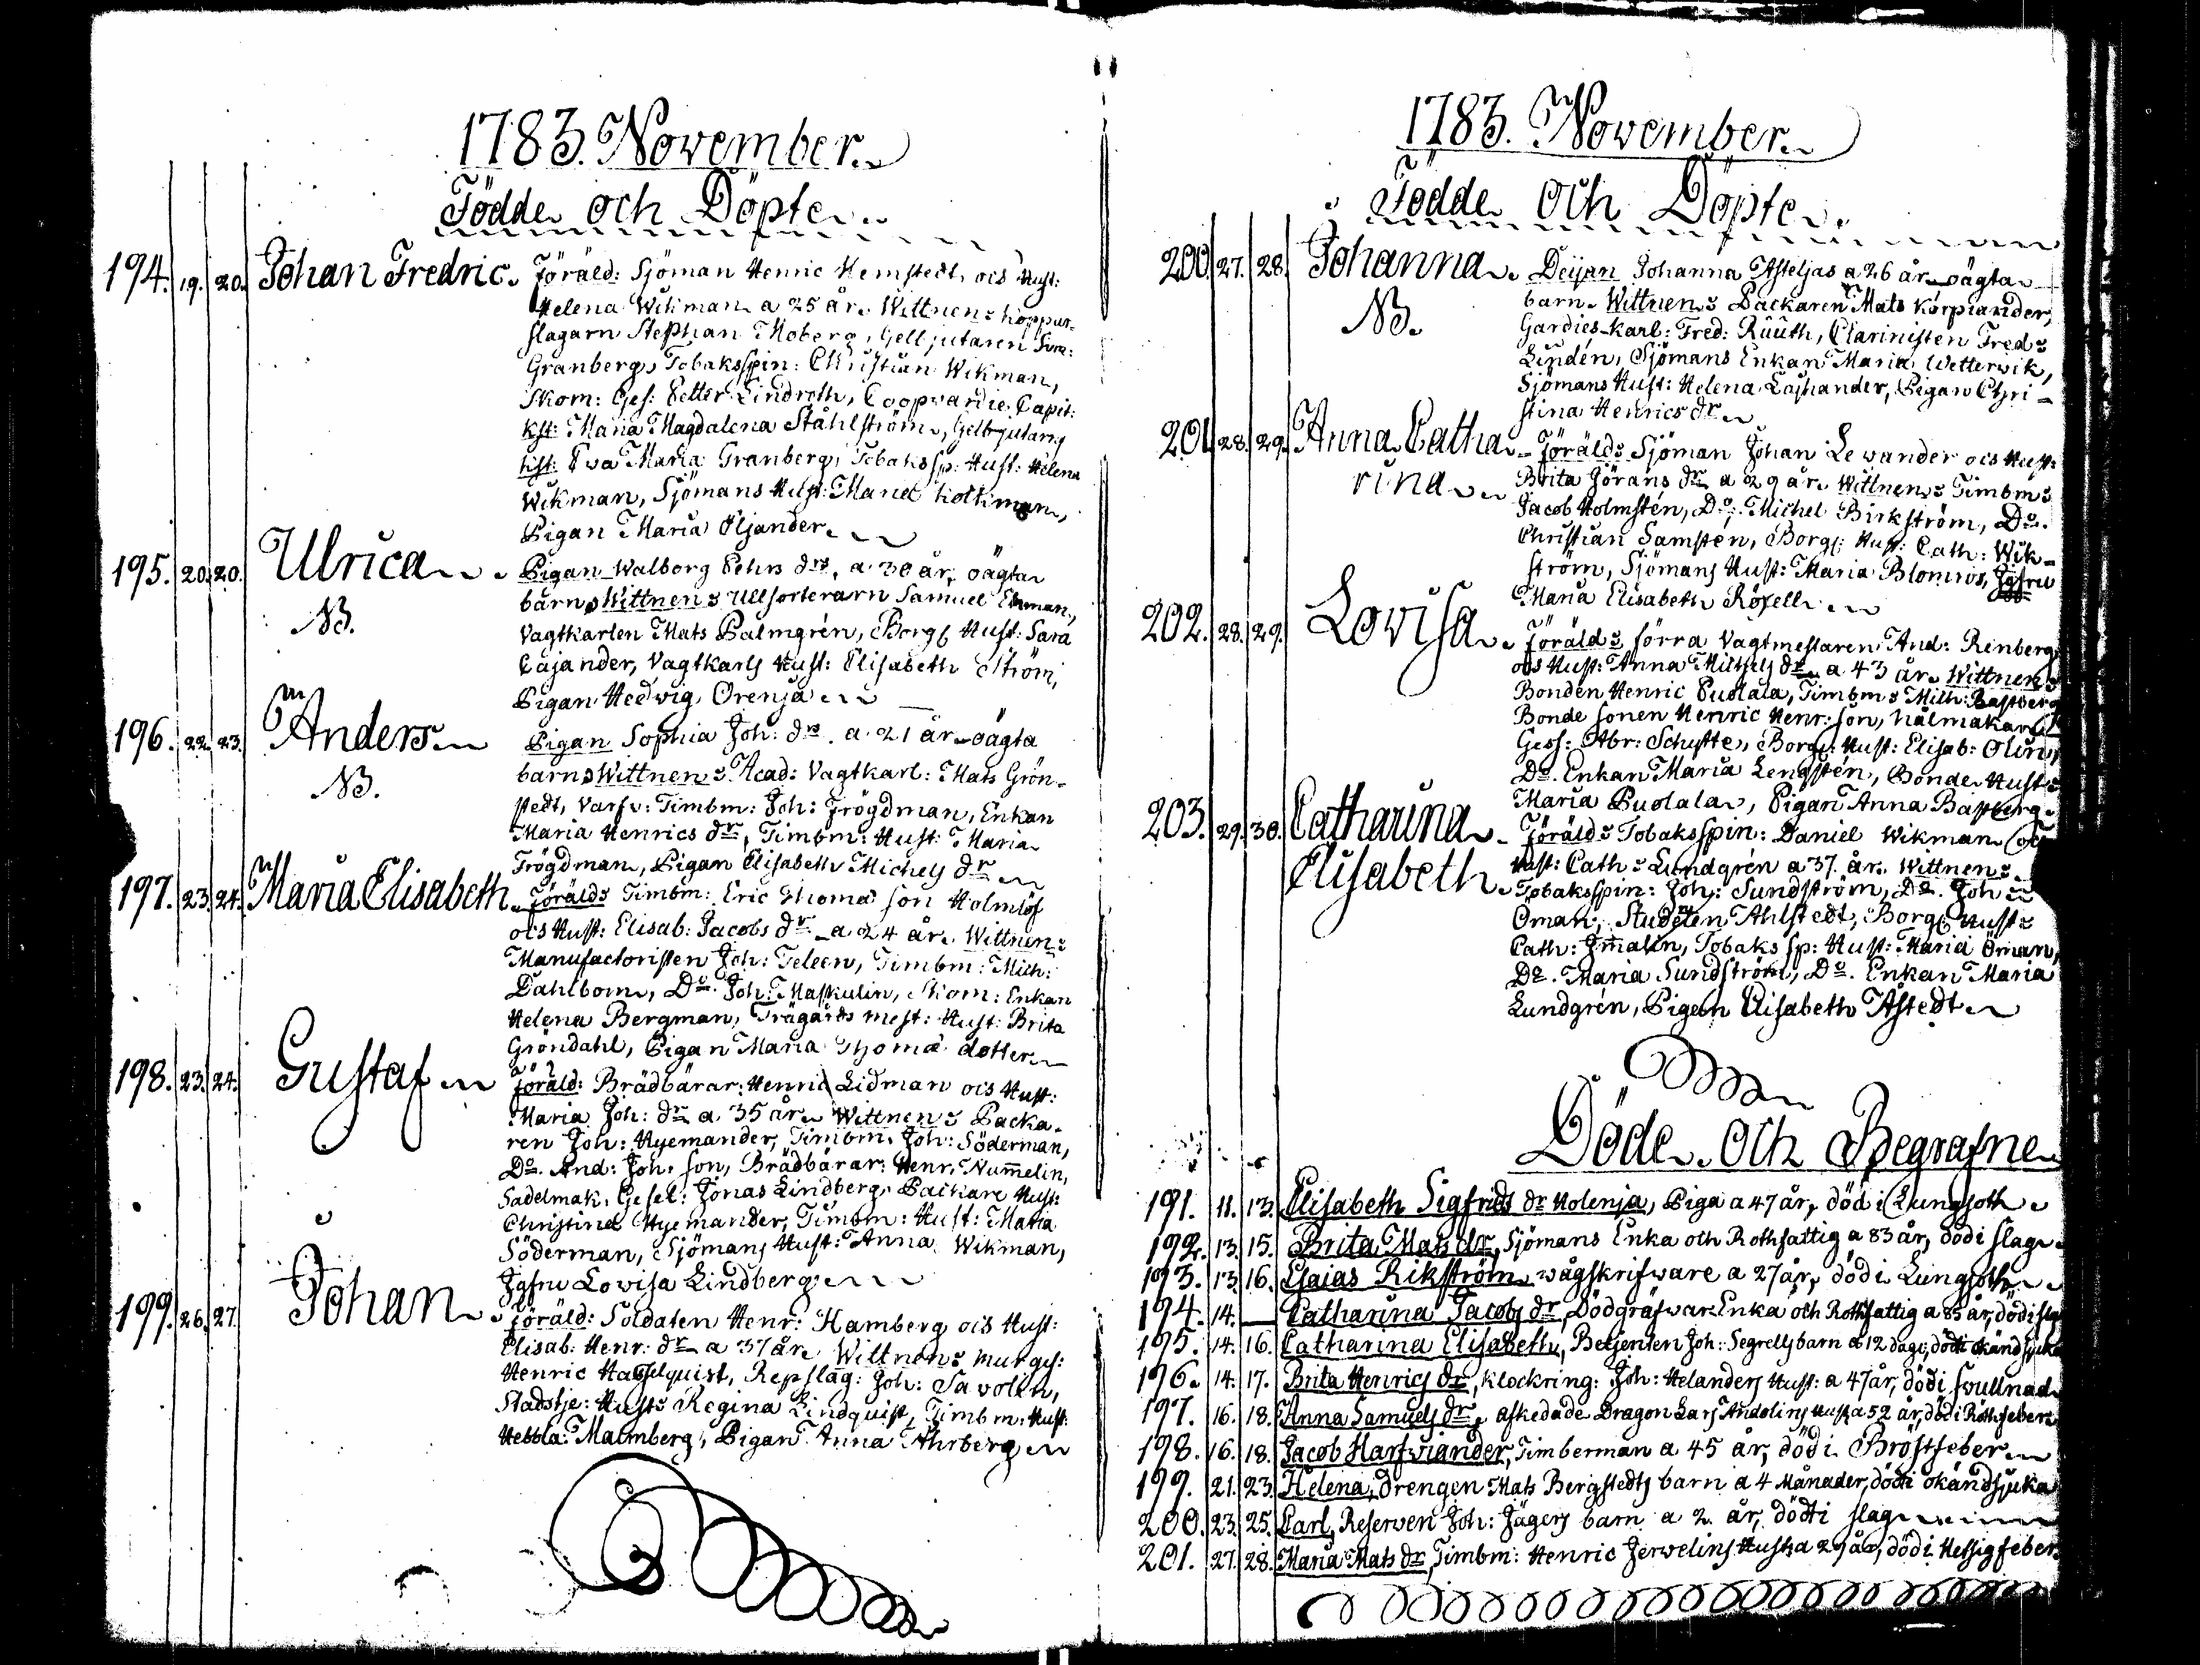 1783. November.
Födde och Döpte.
194. 19. 20. Johan Fredric. Föräld: Sjöman Henric Hemstedt, ocs Hust:
Helena Wikman a 25 år. Wittnen: koppar-
slagarn Stephan Moberg, Gelbjutaren
Granberg, Tobaksspin: Christian Wikman,
Skom: Ges: Petter Lindroth, Coopvardie Capit:
kst: Maria Magdalena Ståhlström, Gelbgjutarns
hst: Eva Maria Granberg, Tobakssp: Hust: Helena
Wikman, Sjömans Hust: Maria holtman,
Pigan Maria Öljander.
195. 20. 20. Ulrica. Pigan Walborg Pehrs drs, a 30 år, oägta
NB. barn, Wittnen: Ullsorterarn Samuel Ekman,
Vagtkarlen Mats Palmgrén, Borg: Hust: Sara
Cajander, Vagtkarls Hust: Elisabeth Ström,
Pigan Hedvig Orenja
196. 22. 23. Anders Pigan Sophia Joh: drs. a 21 år oägta
NB. barn, Wittnen: Acad: Vagtkarl: Mats Grön-
stedt, Varfv: Timbm: Joh: Frögdman, Enkan
Maria Henrics dr, Timbm: Hust: Maria
Frögdman, Pigan Elisabeth Michels dr
197. 23. 24. Maria Elisabeth. Föräld: Timbm: Eric Thomæ son Holmlöf
ocs Hust: Elisab: Jacobs dr a 24 år. Wittnen:
Manufactoristen Joh: Teleen, Timbm: Mich:
Dahlbom, Do. Joh: Maskulin, Skom: Enkan
Helena Bergman, Trägårds mest: Hust: Brita
Gröndahl, Pigan Maria Thomæ dotter
198. 23. 24. Gustaf Föräld: Brädbärar: Henric Lidman ocs Hust:
Maria Joh: dr a 35 år. Wittnen: Backa-
ren Joh: Hyemander, Timbm. Joh: Söderman,
Do. And: Joh: son, Brädbärar: Henr. Numelin,
Sadelmak. Gesel: Jonas Lindberg, Backare Hust:
Christina Hyemander, Timbm: Hust: Maria
Söderman, Sjömans Hust: Anna Wikman,
Jgfru Lovisa Lindberg
199. 26. 27. Johan Föräld: Soldaten Henr: Hamberg ocs Hust:
Elisab: Henr: dr a 37 år Wittnen: murges:
Henric Hasselquist, Repslag: Joh: Savolin,
Stadstje: Hust: Regina Lindquist, Timbm: Hust:
Hebbla Malmberg, Pigan Anna Ahrberg
1783. November.
Födde och Döpte.
200. 27. 28. Johanna. Deijan Johanna Asteljas a 26 år oägta
NB. barn. Wittnen: Backaren Mats Korpiander,
Gardies-karl: Fred: Rüüth, Clarinisten Fred:
Lindén, Sjömans Enkan Maria Wetterwik,
Sjömans Hust: Helena Lajhander, Pigan Chri-
stina Henrics dr
201. 28. 29. Anna Catha- Föräld: Sjöman Johan Lewander ocs Hust:
rina Brita Jörans dr a 29 år. Wittnen: Timbm:
Jacob Holmstén, Do. Michel Birkström, Do.
Christian Samstén, Borg: Hust: Cath: Wik-
ström, Sjömans Hust: Maria Blomros, Jgfru
Maria Elisabeth Röxell
202. 28. 29. Lovisa. Föräld: förra Vagtmestaren And: Renberg
ocs Hust: Anna Michels dr a 43 år. Wittnen:
Bonden Henric Puolala, Timbm: Mich: Bastberg
Bonde sonen Henric Henr: son, nålmakar
Gess: Abr: Schytte, Borg: Hust: Elisab: Olin,
Do. Enkan Maria Lengstén, Bonde Hust:
Maria Puolala, Pigan Anna Bastberg
203. 29. 30. Catharina Föräld: Tobaksspin: Daniel Wikman och
Elisabeth. Hust: Cath: Lundgrén a 37 år. Wittnen:
Tobaksspin: Joh: Sundström, Do. Joh:
Öman, Studenten Ahlstedt, Borg: Hust:
Cath: Jmalin, Tobakssp: Hust: Maria Öman,
Do. Maria Sundström, Do. Enkan Maria
Lundgrén, Pigan Elisabeth Åstedt
Döde och Begrafne
191. 11. 13. Elisabeth Sigfrids dr Holenja, Piga a 47 år, död i Lungsoth
192. 13. 15. Brita Mats dr, Sjömans Enka och Rothfattig a 83 år, död i slag
193. 13. 16. Esaias Rikström, wågskrifware a 27 år, död i Lungsoth
194. 14. — Catharina Jacobs dr, Dödgräfwar Enka och Rothfattig a 85 år, död i slag
195. 14. 16. Catharina Elisabeth, Betjenten Joh: Segrells barn a 12 dagr, död i okänd sjuka
196. 14. 17. Brita Henrics dr, Klockring: Joh: Helanders Hust: a 47 år, död i svullnad
197. 16. 18. Anna Samuels dr, afskedade Dragon Lars Andolins Hust: a 52 år, död i Röthfeber
198. 16. 18. Jacob Harfviander, Timberman a 45 år, död i Bröstfeber
199. 21. 23. Helena, drengen Mats Bergstedts barn a 4 Månader, död i okänd sjuka
200. 23. 25. Carl, Reserven Joh: Jägers barn a 2 år, död i slag
201. 27. 28. Maria Mats dr, Timbm: Henric Jervelins Hust: a 29 år, död i Hetsigfeber